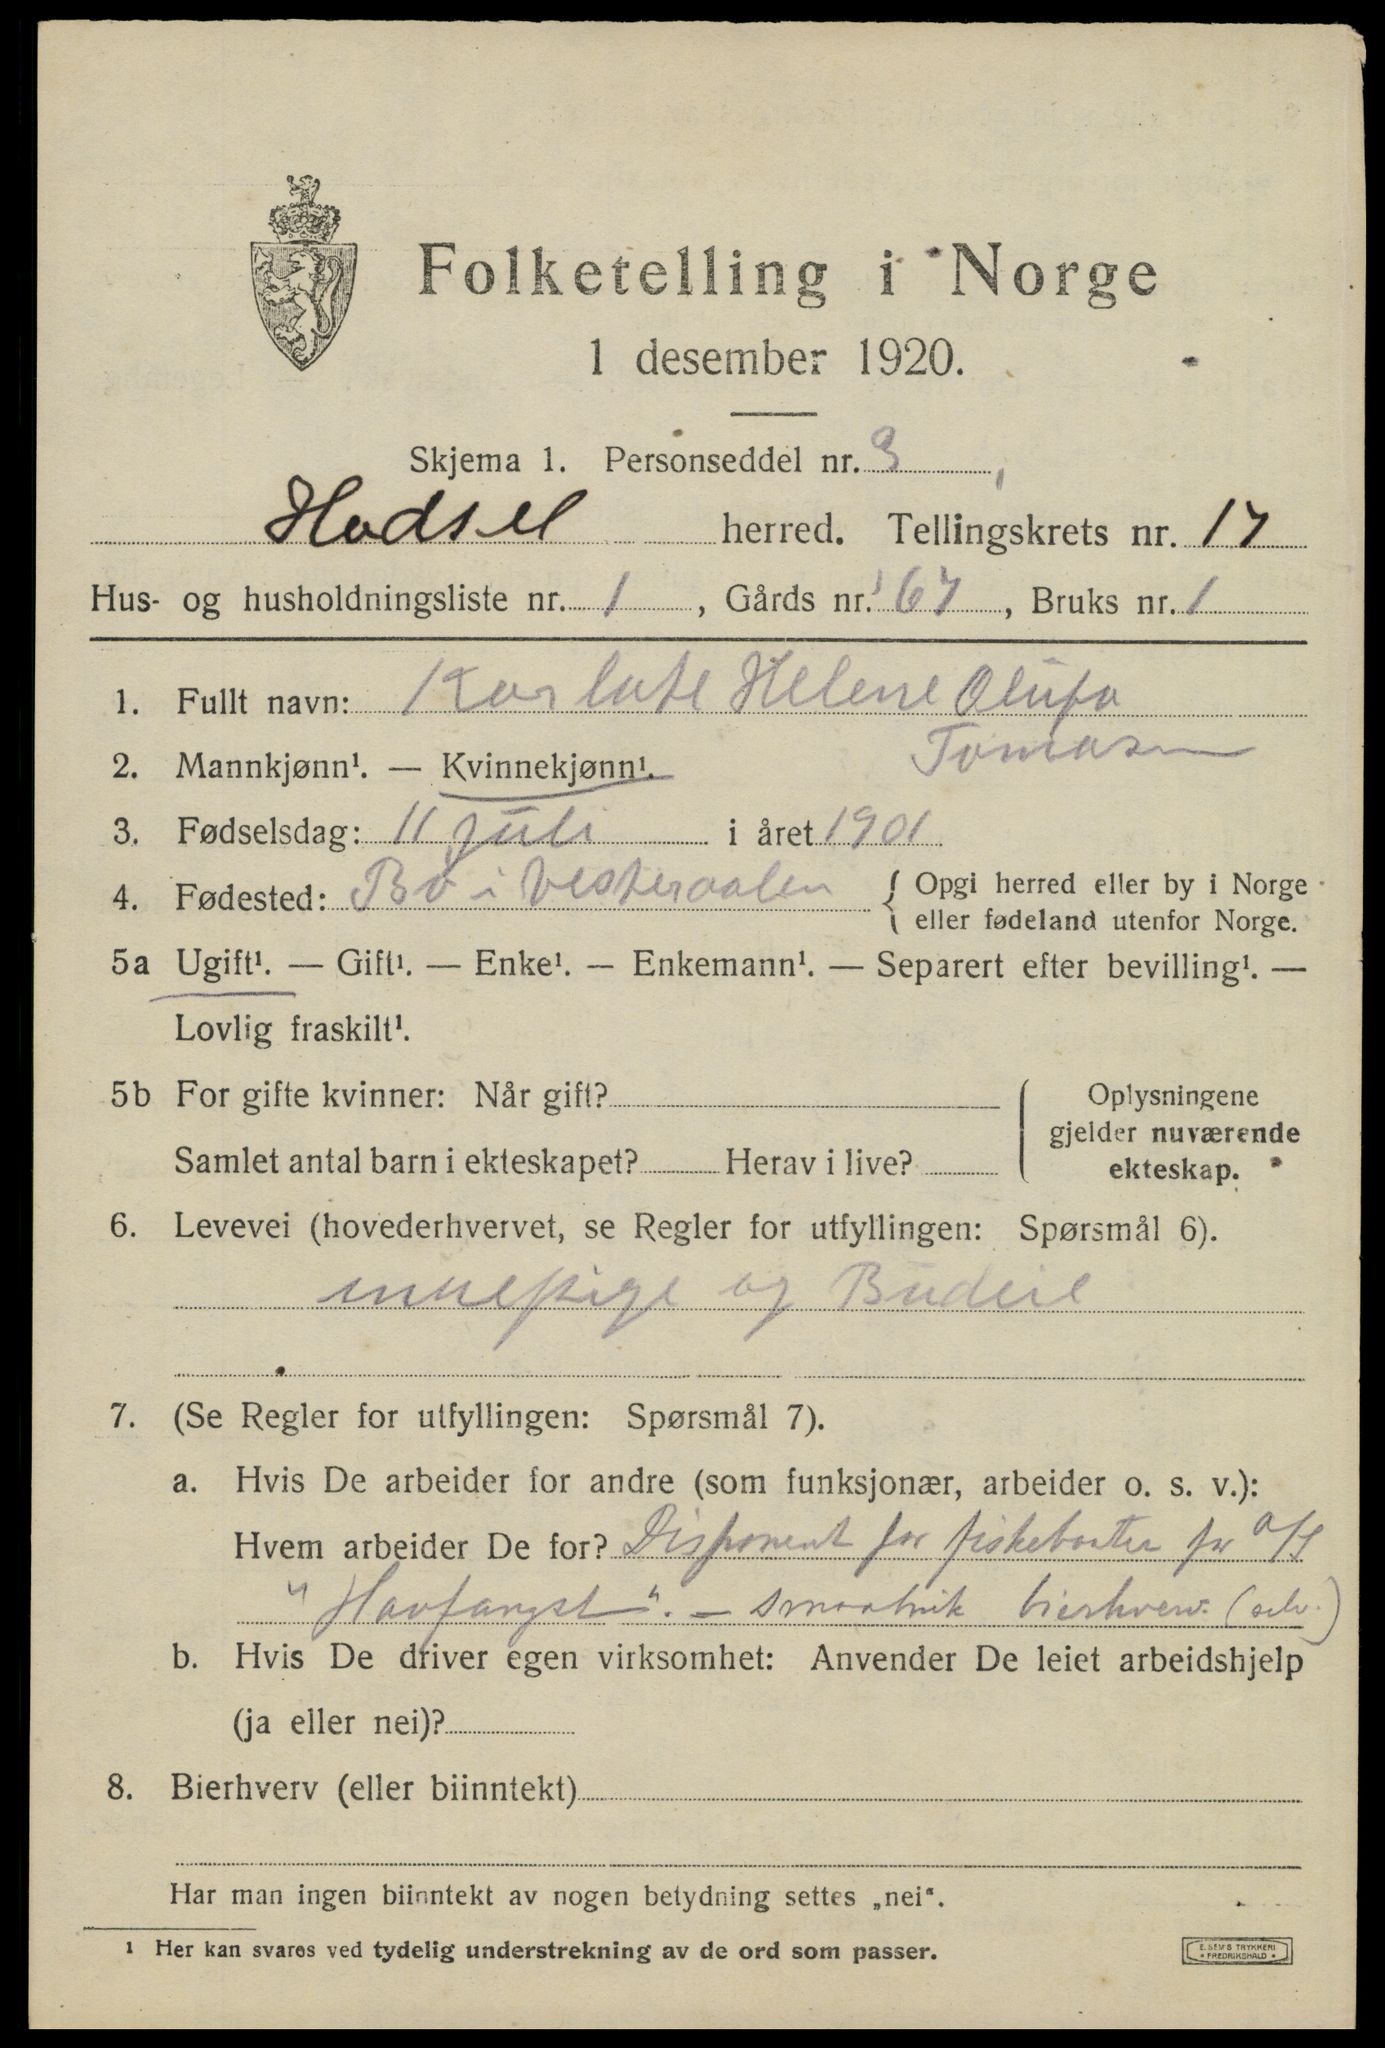 Folketelling i Norge
1 desember 1920.
Skjema 1. Personseddel nr. 3
Hadsel herred. Tellingskrets nr. 17
Hus- og husholdningsliste nr. 1, Gårds nr. 67, Bruks nr. 1
1. Fullt navn: Karlote Helene Olufa
Tomasen
2. Mannkjønn¹. — Kvinnekjønn¹.
3. Fødselsdag: 11 juli i året 1901
4. Fødested: Bø i Vesteraalen { Opgi herred eller by i Norge
eller fødeland utenfor Norge.
5a Ugift¹. — Gift¹. — Enke¹. — Enkemann¹. — Separert efter bevilling¹. —
Lovlig fraskilt¹.
5b For gifte kvinner: Når gift? Oplysningene
gjelder nuværende
Samlet antal barn i ekteskapet? Herav i live? ekteskap.
6. Levevei (hovederhvervet, se Regler for utfyllingen: Spørsmål 6).
innepige og Budeie
7. (Se Regler for utfyllingen: Spørsmål 7).
a. Hvis De arbeider for andre (som funksjonær, arbeider o. s. v.):
Hvem arbeider De for? Disponent for fiskebaater for A/S
"Havfangst". - smaabruk bierhverv. (selv.)
b. Hvis De driver egen virksomhet: Anvender De leiet arbeidshjelp
(ja eller nei)?
8. Bierhverv (eller biinntekt)
Har man ingen biinntekt av nogen betydning settes „nei".
1 Her kan svares ved tydelig understrekning av de ord som passer.
E. SEM'S TRYKKERI
* FREDRIKSHALD *